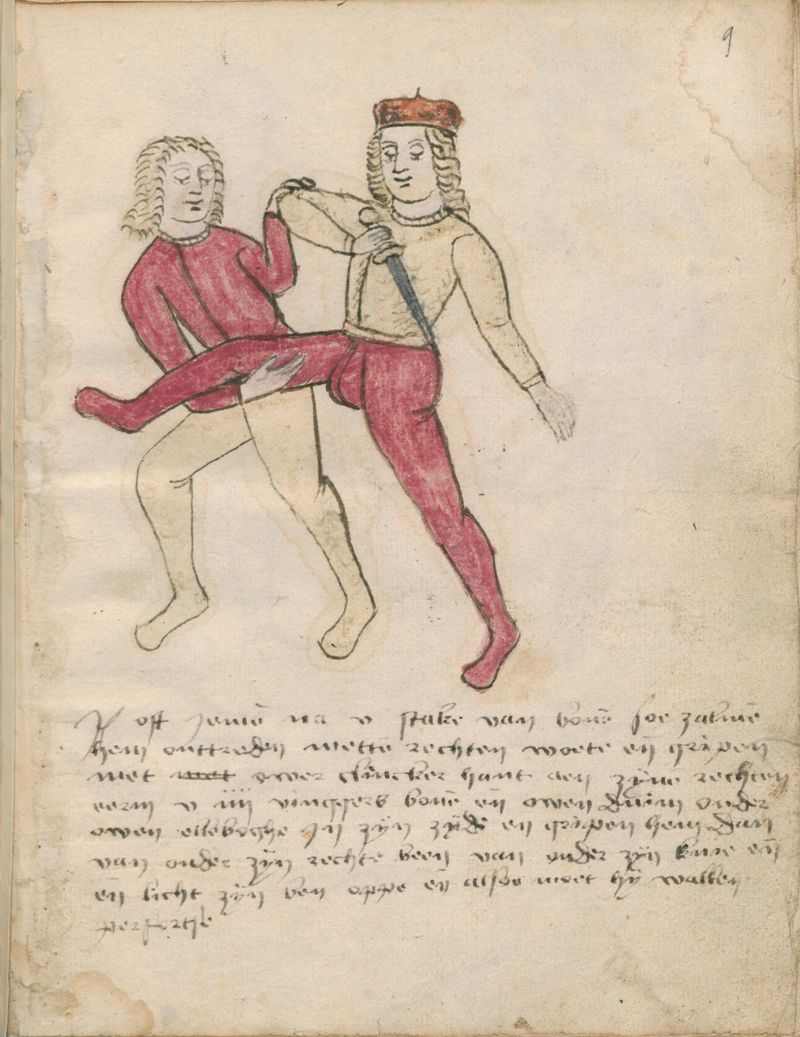 9
oft iemē na v stake van bouē soe zalmē
hem onttreden mette rechten voete eñ gripen
met met ower slincker hant aen zijne rechten
eerm v iiij vinggers bouē eñ owen duim onder
owen elleboghe in zijn zijde en gripen hem dan
van onder zijn rechte been van onder zijn knie eñ
eñ licht zijn ben oppe eñ alsoe moet hij wallen